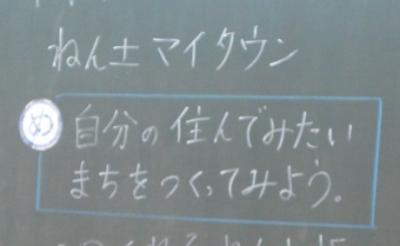 ねん土マイタウン
め 自分の住んでみたい
まちをつくってみよう。